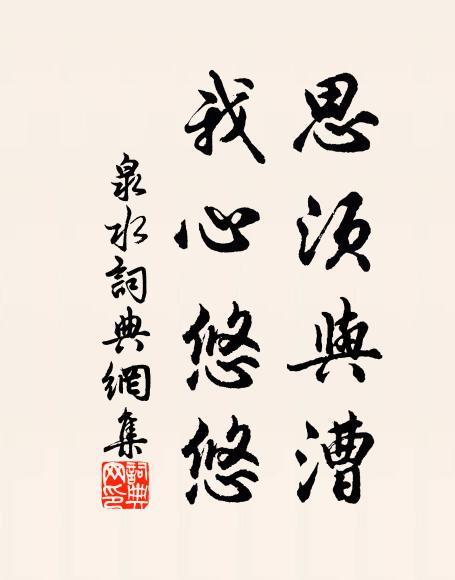 思須與漕
我心悠悠
泉水詞典網集
詞典网印